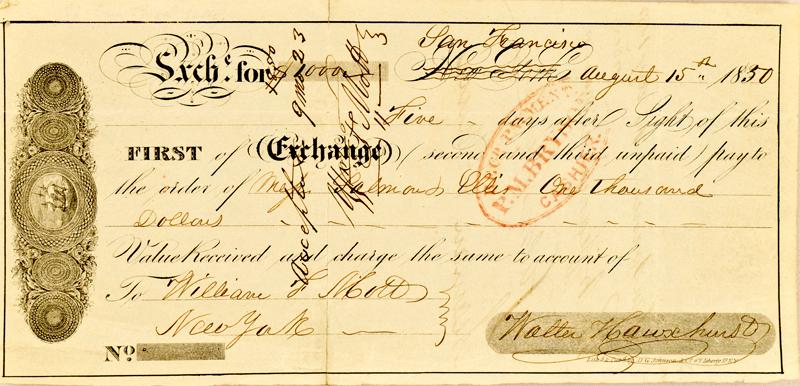 San Francisco
Exch.e for $1000 New York August 15th 1850
Five days after Sight of this
FIRST of (Exchange) (second and third unpaid) pay to
the order of Mess Salmon & Ellis One thousand
Dollars
Value Received and charge the same to account of
To William F Mott
New York
Walter Hawxhurst
No.
Accepted 9 mo 23
P.M. BRY
CASHIER.